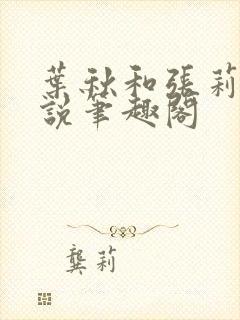 葉秋和張莉
說筆趣閣
龔莉